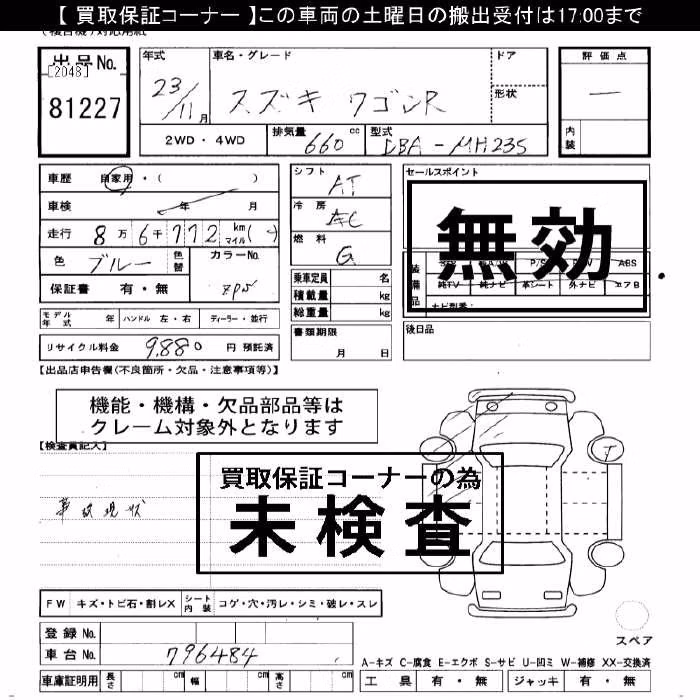 【 買取保証コーナー 】この車両の土曜日の搬出受付は17:00まで
出品No.
[2048]
81227
年式 車名・グレード ドア
23/11月 スズキ ワゴンR 形状
2WD・4WD 排気量 660 cc 型式 DBA-MH23S
評価点
—
内装
車歴 自家用・( )
車検 年 月
走行 8万6千772 km マイル( )
色 ブルー 色替 カラーNo.
保証書 有・無
シフト AT
冷房 AC
燃料 G
乗車定員 名
積載量 kg
総重量 kg
セールスポイント
無効
装備品
ABS
純TV 純ナビ 革シート 外ナビ エアB
ナビ型番:
モデル年式 年 ハンドル 左・右 ディーラー・並行
書類期限
月 日
後日品
リサイクル料金 9,880 円 預託済
【出品店申告欄(不良箇所・欠品・注意事項等)】
機能・機構・欠品部品等は
クレーム対象外となります
【検査員記入】
買取保証コーナーの為
未検査
事故現状
T
FW キズ・トビ石・割レX シート内装 コゲ・穴・汚レ・シミ・破レ・スレ
登録No.
車台No. 796484
スペア
A-キズ C-腐食 E-エクボ S-サビ U-凹ミ W-補修 XX-交換済
車庫証明用 長さ cm 幅 cm 高さ cm
工具 有・無 ジャッキ 有・無